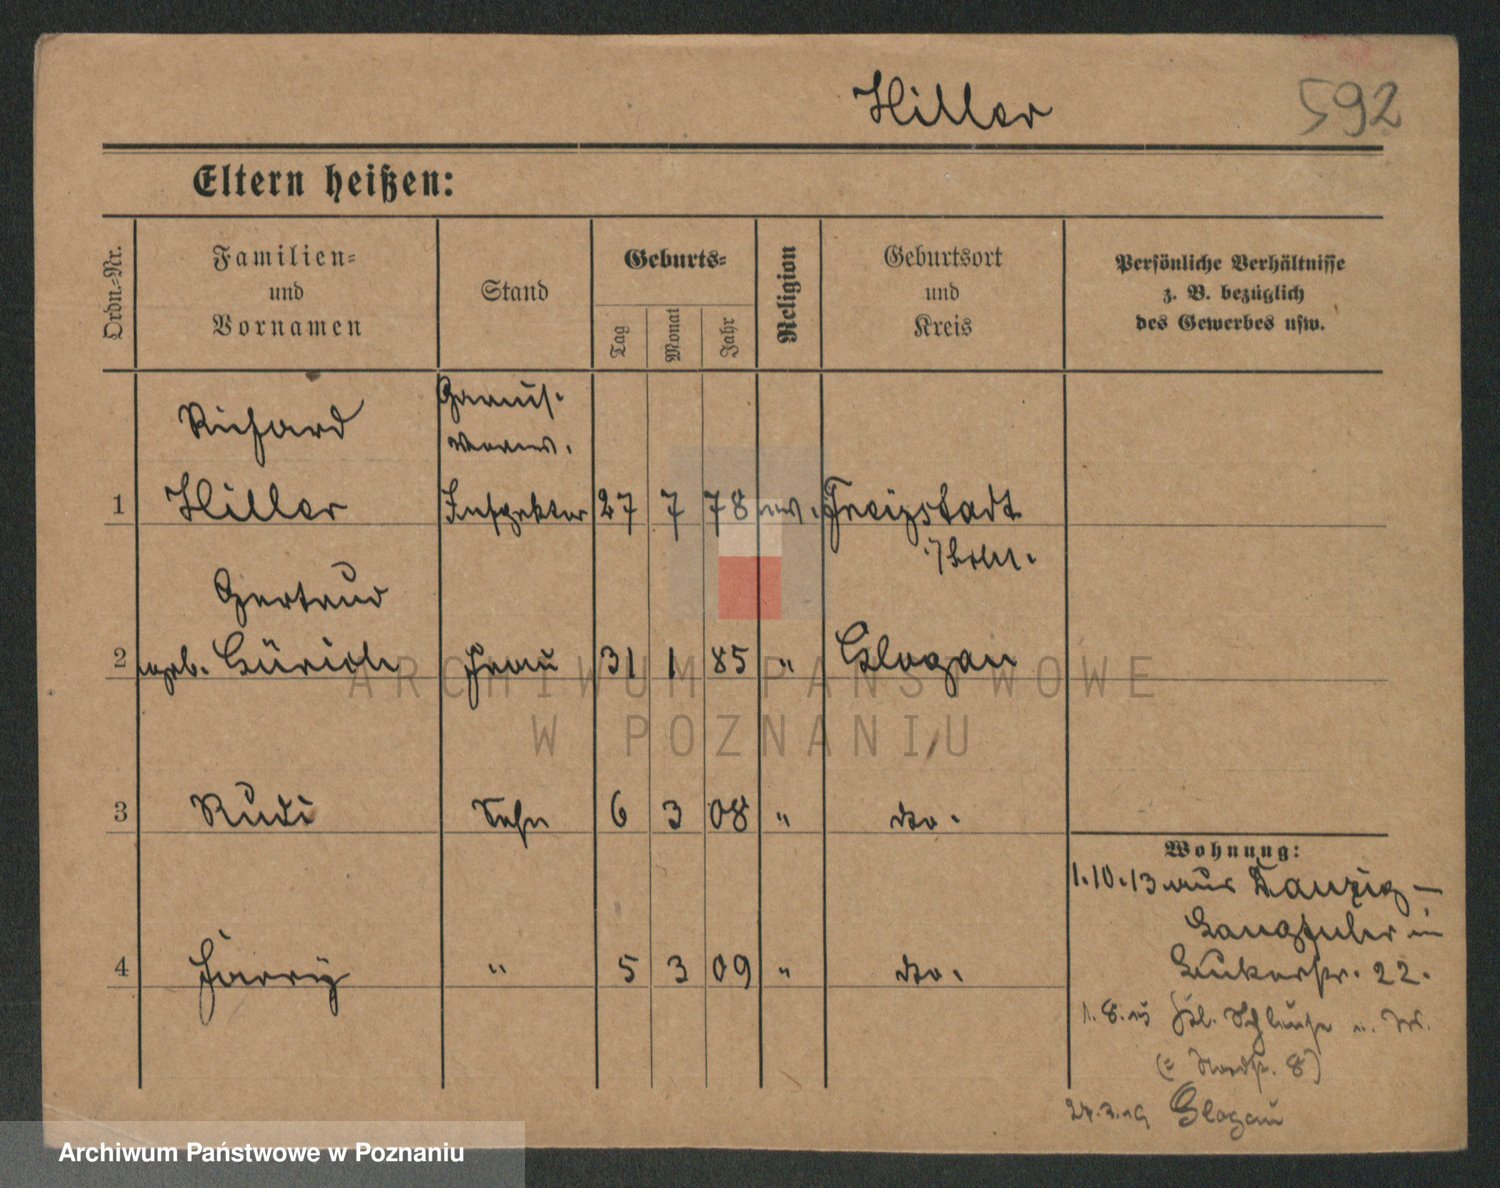 Hiller 592
Eltern heißen:
Ordn.-Nr. Familien- und Vornamen Stand Geburts- Tag Monat Jahr Religion Geburtsort und Kreis Persönliche Verhältnisse z. B. bezüglich des Gewerbes usw.
Richard Garnis.
verw.
1 Hiller Inspektor 27 7 78 ev. Freistadt
i/Schl.
Gertrud
2 geb. Frau 31 1 85 " Glogau
3 Rudi Sohn 6 3 08 " do.
Wohnung:
1.10.13 aus Danzig-
Langfuhr in
4 Harry " 5 3 09 " do. 22.
1.8.15 Kl. Schleuse
(= Nordstr. 8)
24.3.19 Glogau
ARCHIWUM PAŃSTWOWE
W POZNANIU
Archiwum Państwowe w Poznaniu